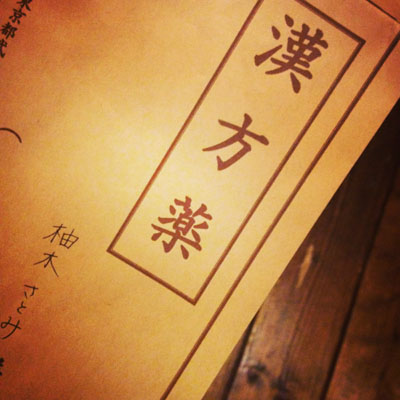 漢方薬
柚木さとみ
東京都武